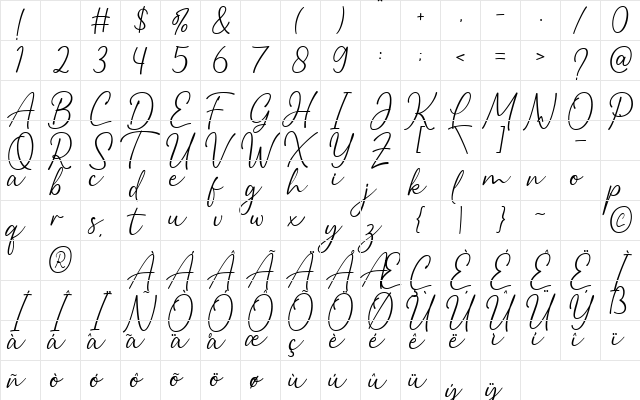 ! # $ % & ( ) * + , - . / 0
1 2 3 4 5 6 7 8 9 : ; < = > ? @
A B C D E F G H I J K L M N O P
Q R S T U V W X Y Z [ \ ] _
a b c d e f g h i j k l m n o p
q r s t u v w x y z { | } ~ ©
® À Á Â Ã Ä Å Æ Ç È É Ê Ë Ì
Í Î Ï Ñ Ò Ó Ô Õ Ö Ø Ù Ú Û Ü Ý ß
à á â ã ä å æ ç è é ê ë ì í î ï
ñ ò ó ô õ ö ø ù ú û ü ý ÿ